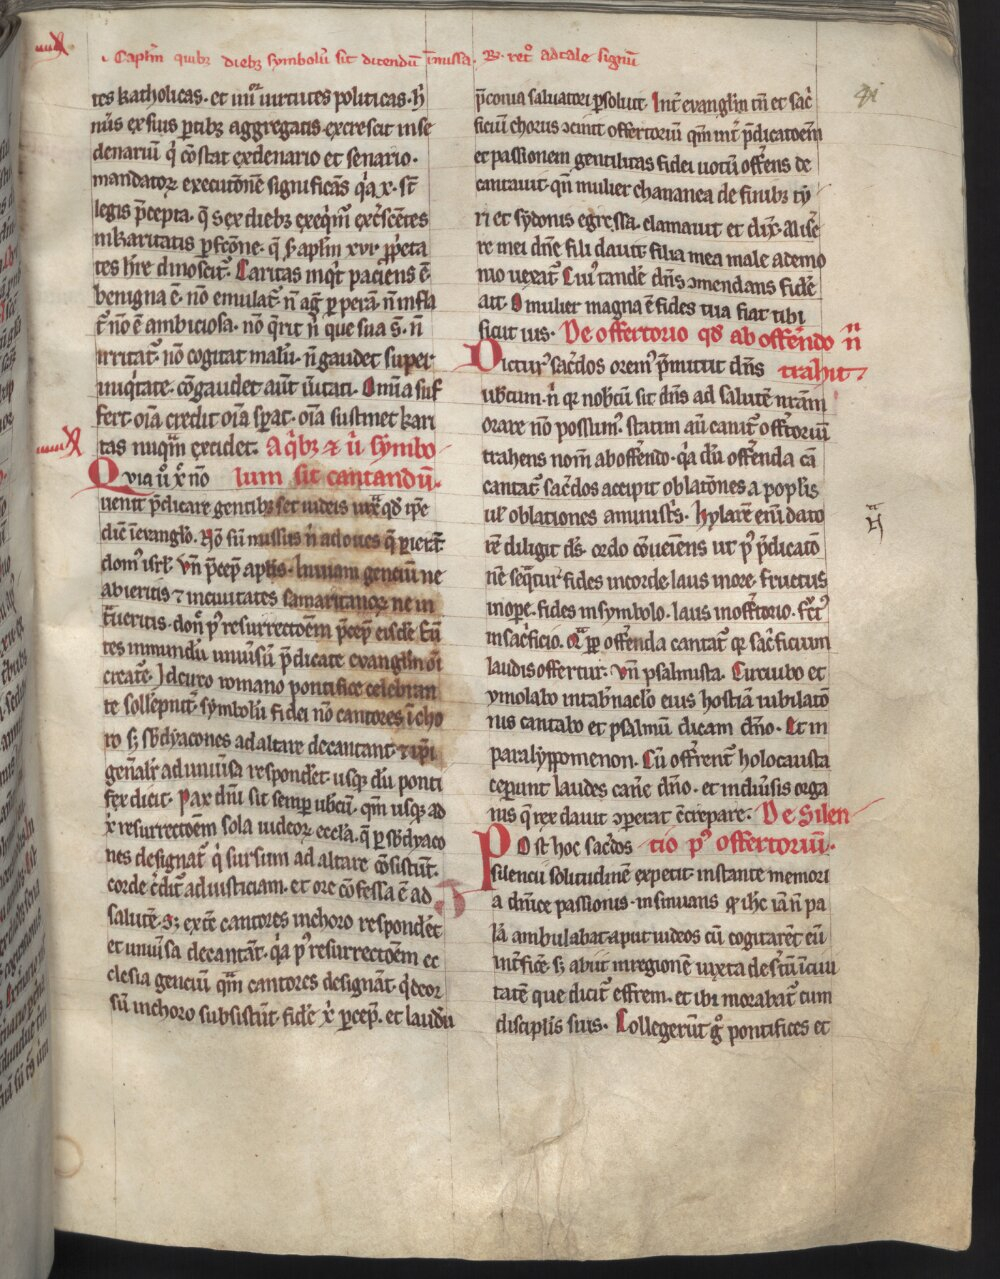 Caplm̄ quibꝫ diebꝫ symbolū sit dicendū ī missa. R. ret͛o ad tale signū
tes katholicas. et iiiiᵒʳ uirtutes politicas. h̄
nūs ex suis ꝑtibꝫ aggregatis excrescit in se
denariū q̇ cōstat ex denario et senario.
mandatoꝝ executōnem significās q̇a .x. st̄
legis p̄cepta. q̄ sex diebꝫ exeq̄m̄ exc̄scētes
in karitatis ꝑfc̄one. q̄ s aplm̄ xvi ꝓp̄eta
tes hr̄e dinoscit᷑. Caritas inq̇t paciens ē.
benigna ē. nō emulat᷑. n̄ aḡ ꝑperā. n̄ infla
t᷑. nō ē ambiciosa. nō q̄rit n̄ que sua s̄. n̄
irritat᷑. nō cogitat malū. n̄ gaudet super
iniq̇tate. cōgaudet aūt ūitati. Omīa suf
fert. oīa credit oīa sꝑat. oīa sustinet kari
tas nūq̄m excidet. A q̇bꝫ ⁊ ū symbo
Quia ū xp̄ nō lum sit cantandū.
uenit p̄dicare gentibꝫ set iudeis iux̄ qd̄ ip̄e
dic̄ ī evanglo. Nō sū missus n̄ ad oues q̄ ꝑierāt
domꝰ isrl̄. Vn̄ p̄cep̄ aplis. In uiam genciū ne
abieritis ⁊ in ciuitates samaritanoꝝ ne in
t̄ueritis. donꝫ pꝰ resurrectoēm p̄cep̄ eisdē. Eū
tes in mundū uniūsū p̄dicate evanglm̄ oī
creatē. Idcirco romano pontifice celebran
te sollēpnit᷑. symbolū fidei nō cantores ī cho
ro sꝫ sb̄dyacones ad altare decantant ⁊ ip̄i
gen̄alit᷑ ad uniūsa respondēt usqꝫ dū ponti
fex dicit. Pax dn̄i sit semꝑ ub̄cū. qm̄ usqꝫ ad
x̄ resurrectoēm sola iudeoꝝ ecc̄la. q̄ ꝑ sb̄dyaco
nes designat᷑ q̇ sursum ad altare cōsistūt.
corde c̄dit᷑ ad iusticiam. et ore cōfessa ē ad
salutē. Sꝫ extc̄ cantores in choro respondēt
et uniūsa decantāt. q̇a pꝰ resurrectoēm ec
clesia genciū qm̄ cantores designāt q̇ deor
sū in choro subsistūt. fidē x̄ ꝑcep̄. et laudū
p̄conia saluatori ꝑsoluit. Int̄ evanglm̄ tn̄ et sac̄
ficiū chorus ↄcinit offertoriū qm̄ int̄ p̄dicatoēm
et passionem gentilitas fidei uotū offēns de
cantauit. qn̄ mulier chananea de finibꝫ ty
ri et sydonis egressa. clamauit et dix̄. Mise
re mei dn̄e fili dauit. filia mea male a demo
nio uexat᷑. Cui tandē dn̄s ↄmendans fidē
ait. O mulier magna ē fides tua fiat tibi
sicut uis. De offertorio qd̄ ab offendo n̄
Dicturꝰ sac̄dos oremꝰ p̄mittit dn̄s trahit.
ub̄cum. n̄ qꝫ nob̄cū sit dn̄s ad salutē nr̄am
orare nō possumꝰ. statim aū canit᷑ off̄toriū
trahens nom̄ ab offendo. q̇a dū offenda cā
cantat᷑ sac̄dos accipit oblatōnes a poplis
ul̓ oblationes a ministris. hylarē enī dato
rē diligit ds̄. ordo cōueiēns ut pꝰ p̄dicatō
nē seq̄tur fides in corde. laus in ore. fructus
in ope. fides in symbolo. laus in off̄torio. fc̄tꝰ
in sac̄ficio. qͣ ꝓp̄ offenda cantat᷑ qꝫ sac̄ficium
laudis offertur. vn̄ psalmista. Circuibo et
ymolabo in tab̄nac̄lo eius hostiā iubilatō
nis cantabo et psalmū dicam dn̄o. Et in
paralyppomenon. Cū offrent᷑ holocausta
ceperunt laudes can̄e dn̄o. et in diūsis orga
nis q̄ rex dauit ↄperat c̄crepare. De Silen
Post hoc sac̄dos tio pꝰ offertoriū.
silencii solitudinē expetit instante memori
a dn̄ice passionis. insinuans qꝫ ih̄c iā n̄ pa
lā ambulabat aput iudeos cū cogitarēt eū
int̄fic̄e. sꝫ abiit in regionē iuxta desertū ī ciui
tatē que dicit᷑ effrem. et ibi morabat᷑ cum
disciplis suis. Collegerūt g̊ pontifices et